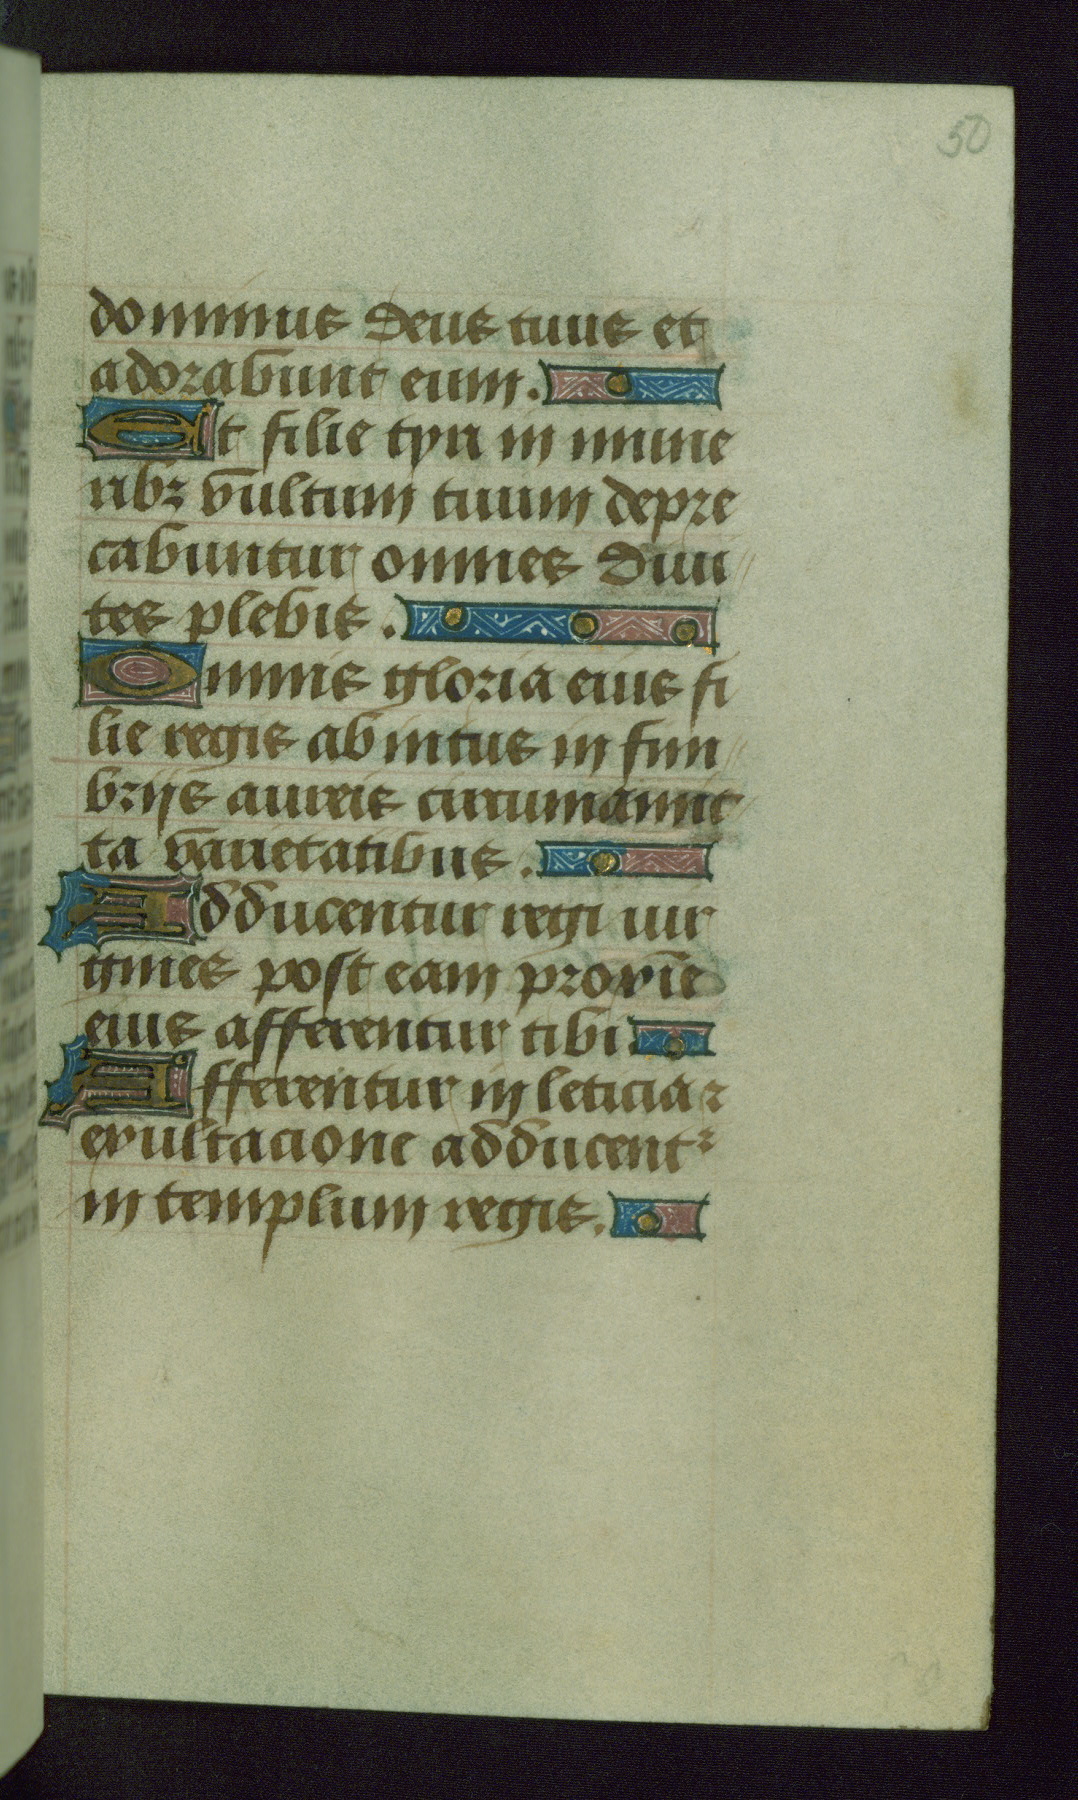 50
dominus deus tuus et
adorabunt eum.
Et filie tyri in mune
ribꝫ vultum tuum depre
cabuntur omnes diui
tes plebis.
Omnis gloria eius fi
lie regis ab intus in fim
brijs aureis circumamic
ta varietatibus.
Adducentur regi uir
gines post eam proxīe
eius afferentur tibi.
Afferentur in leticia ⁊
exultacione adducentᷣ
in templum regis.